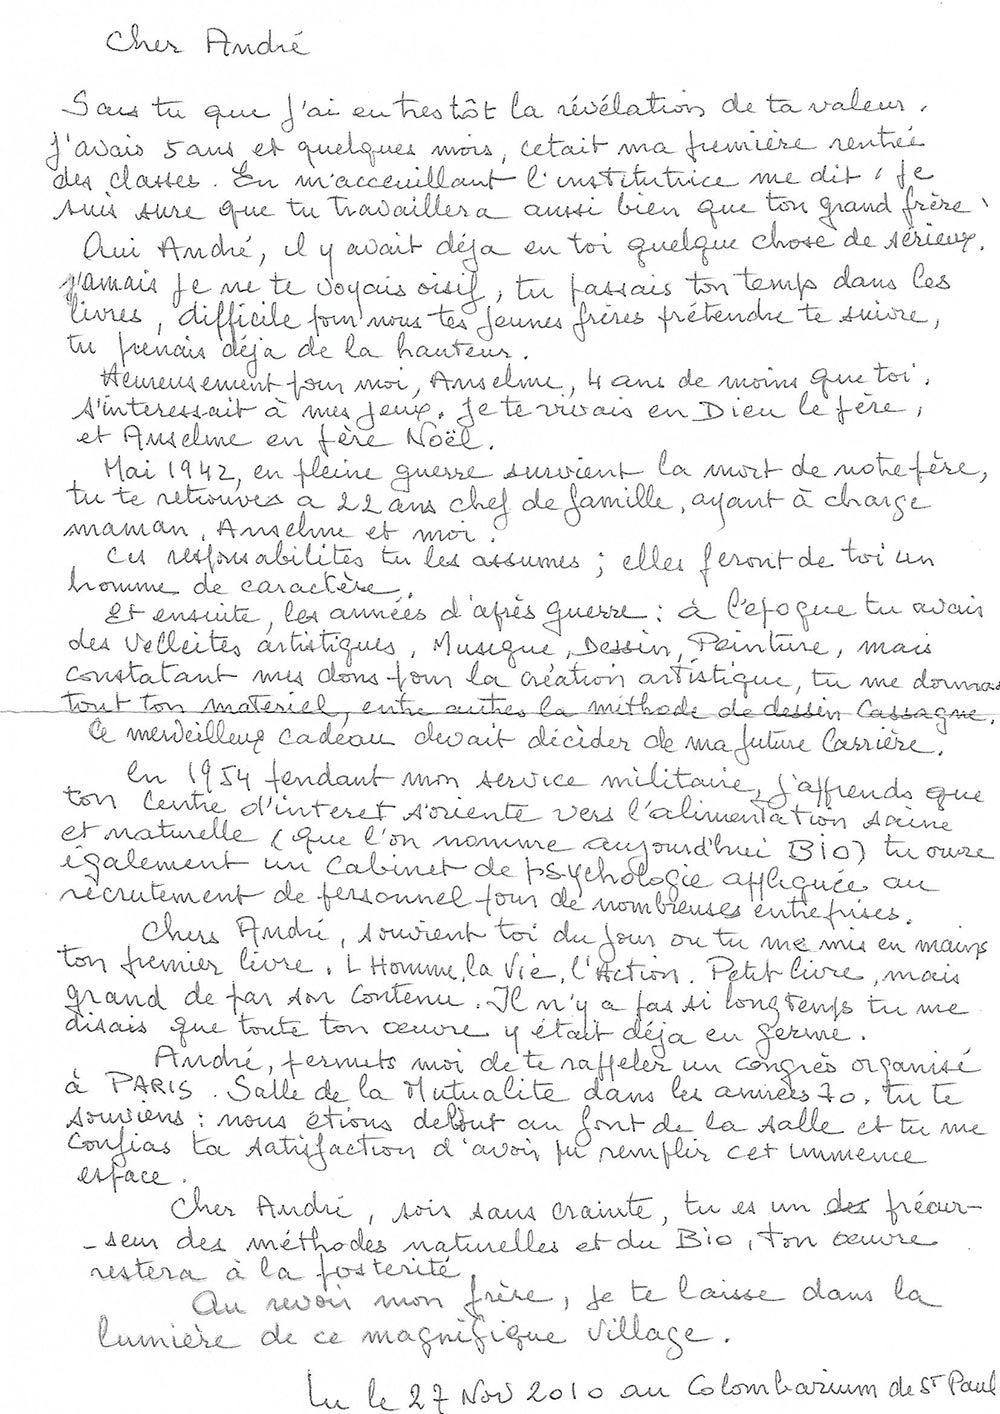 Cher André
Sais tu que j'ai eu tres tôt la révélation de ta valeur.
J'avais 5 ans et quelques mois, cetait ma première rentrée
des classes. En m'acceuillant l'institutrice me dit, je
suis sure que tu travaillera aussi bien que ton grand frère'
Oui André, il y avait déja en toi quelque chose de sérieux.
jamais je ne te voyais oisif, tu passais ton temps dans les
livres, difficile pour nous tes jeunes frères prétendre te suivre,
tu prenais déja de la hauteur.
Heureusement pour moi, Anselme, 4 ans de moins que toi.
s'interessait à mes jeux. Je te vivais en Dieu le père,
et Anselme en père Noël.
Mai 1942, en pleine guerre survient la mort de notre père,
tu te retrouves a 22 ans chef de famille, ayant à charge
maman, Anselme et moi.
Ces responsabilités tu les assumes ; elles feront de toi un
homme de caractère.
Et ensuite, les années d'après guerre : à l'epoque tu avais
des velleités artistiques, Musique, Dessin, Peinture, mais
constatant mes dons pour la création artistique, tu me donnas
tout ton matériel, entre autres la méthode de dessin Cassagne.
Ce merveilleux cadeau devait décider de ma future Carrière.
En 1954 pendant mon service militaire, j'apprends que
ton Centre d'interet s'oriente vers l'alimentation saine
et naturelle (que l'on nomme aujourd'hui BiO) tu ouvre
également un Cabinet de psychologie appliquée au
recrutement de personnel pour de nombreuses entreprises.
Chers André, souvient toi du jour ou tu me mis en mains
ton premier livre. L Homme, la Vie, l'Action. Petit livre, mais
grand de par son Contenu. Il n'y a pas si longtemps tu me
disais que toute ton œuvre y était déja en germe.
André, permets moi de te rappeler un congrès organisé
à PARIS. Salle de la Mutualité dans les années 70. tu te
souviens : nous étions debout au font de la salle et tu me
confias ta satisfaction d'avoir pu remplir cet immence
espace.
Cher André, sois sans crainte, tu es un des précur-
-seur des méthodes naturelles et du Bio, ton œuvre
restera à la posterité
Au revoir mon frère, je te laisse dans la
lumière de ce magnifique village.
Lu le 27 Nov 2010 au Colombarium de St Paul